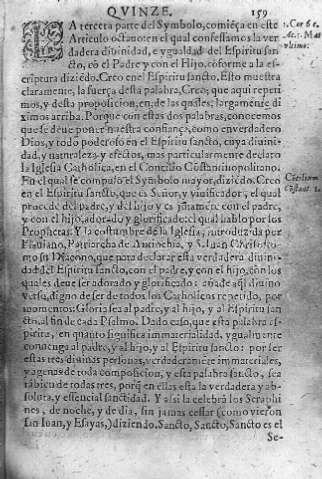 QVINZE. 159
LA tercera parte del Symbolo, comiẽça en este
Articulo octauo: en el qual confessamos la ver
dadera diuinidad, e ygualdad del Espiritu san-
cto, cõ el Padre y con el Hijo, cõforme a la es-
criptura diziẽdo. Creo en el Espiritu sancto. Esto muestra
claramente, la fuerça desta palabra, Creo; que aqui repeti
mos, y desta proposicion, en, de las quales; largamente di
ximos arriba. Porque con estas dos palabras, conocemos
que se deue poner nuestra confiança, como en verdadero
Dios, y todo poderoso en el Espiritu sancto, cuya diuini
dad, y naturaleza y efectos, mas particularmente declaro
la Iglesia Catholica, en el Concilio Constantinopolitano.
En el qual se compuso el Symbolo mayor, diziẽdo. Creo
en el Espiritu sancto, que es Señor, y viuificador, el qual
procede del padre, y del hijo y es jũtamẽte con el padre,
y con el hijo, adorado y glorificado: el qual hablo por los
Prophetas. Y la costumbre de la Iglesia, introduzida por
Flauiano, Patriarcha de Antiochia, y S. Iuan Chrisosto-
mo su Diacono, que para declarar esta verdadera diuini-
dad del Espiritu sancto, con el padre, y con el hijo, con los
quales deue ser adorado y glorificado: añade aql diuino
verso, digno de ser de todos los Catholicos repetido, por
momentos: Gloria sea al padre, y al hijo, y al Espiritu san
cto, al fin de cada Psalmo. Dado caso, que esta palabra es
piritu, en quanto significa immaterialidad, ygualmente
conuenga al padre, y al hijo, y al Espiritu sancto: por ser
estas tres, diuinas personas, verdaderamẽte immateriales,
y agenas de toda composicion, y esta palabra sancto, sea
tãbien de todas tres, porq̃ en ellas esta la verdadera y ab-
soluta, y essencial sanctidad. Y assi la celebrã los Seraphi
nes, de noche, y de dia, sin jamas cessar (como vieron
sin Iuan, y Esayas,) diziendo. Sancto, Sancto, Sancto es el
Se-
1. Cor 6 e.
Mat
vltimo.
Cõcilium
Cõstant. 1.